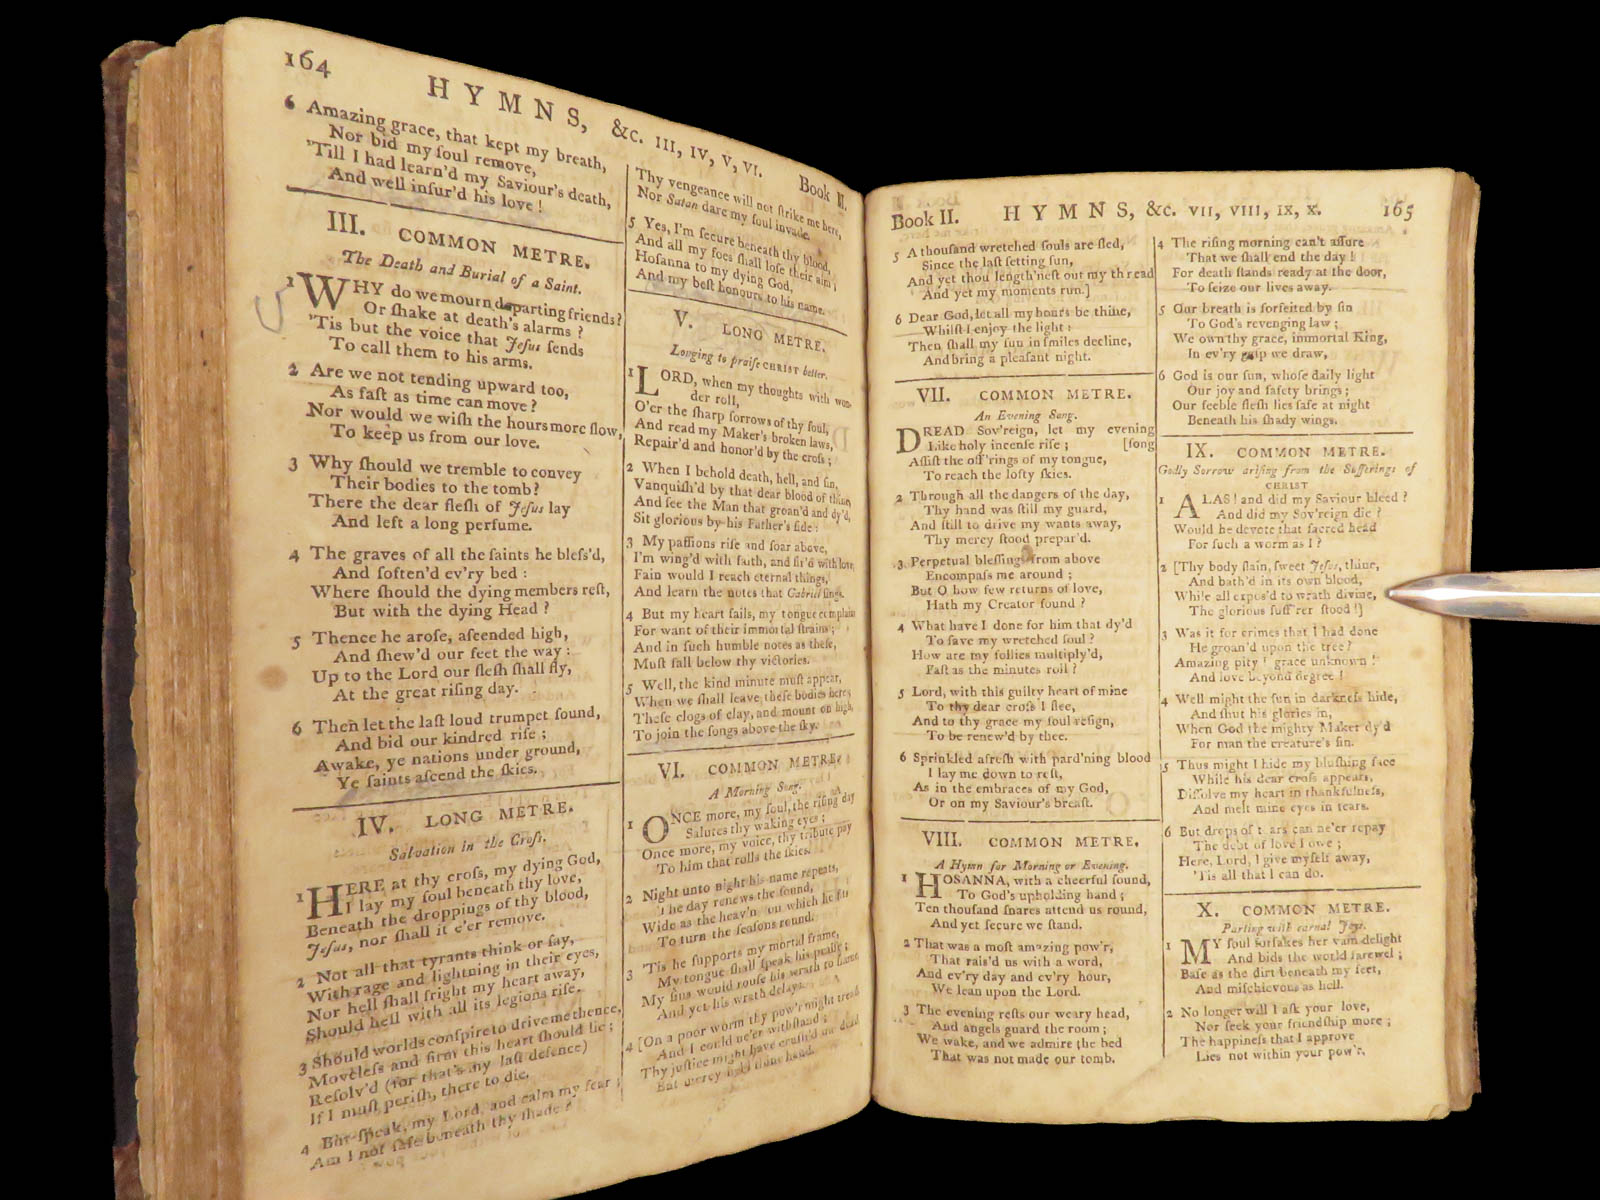 164
HYMNS, &c. III, IV, V, VI. Book II.
6 Amazing grace, that kept my breath,
Nor bid my ſoul remove,
'Till I had learn'd my Saviour's death,
And well inſur'd his love!
III. COMMON METRE.
The Death and Burial of a Saint.
1 WHY do we mourn departing friends?
Or ſhake at death's alarms?
'Tis but the voice that Jeſus ſends
To call them to his arms.
2 Are we not tending upward too,
As faſt as time can move?
Nor would we wiſh the hours more ſlow,
To keep us from our love.
3 Why ſhould we tremble to convey
Their bodies to the tomb?
There the dear fleſh of Jeſus lay
And left a long perfume.
4 The graves of all the ſaints he bleſs'd,
And ſoften'd ev'ry bed:
Where ſhould the dying members reſt,
But with the dying Head?
5 Thence he aroſe, aſcended high,
And ſhew'd our feet the way:
Up to the Lord our fleſh ſhall fly,
At the great riſing day.
6 Then let the laſt loud trumpet ſound,
And bid our kindred riſe;
Awake, ye nations under ground,
Ye ſaints aſcend the ſkies.
IV. LONG METRE.
Salvation in the Croſs.
1 HERE at thy croſs, my dying God,
I lay my ſoul beneath thy love,
Beneath the droppings of thy blood,
Jeſus, nor ſhall it e'er remove.
2 Not all that tyrants think or ſay,
With rage and lightning in their eyes,
Nor hell ſhall fright my heart away,
Should hell with all its legions riſe.
3 Should worlds conſpire to drive me thence,
Moveleſs and firm this heart ſhould lie;
Reſolv'd (for that's my laſt defence)
If I muſt periſh, there to die.
4 But ſpeak, my Lord, and calm my fear;
Am I not ſafe beneath thy ſhade?
Thy vengeance will not ſtrike me here,
Nor Satan dare my ſoul invade.
5 Yes, I'm ſecure beneath thy blood,
And all my foes ſhall loſe their aim;
Hoſanna to my dying God,
And my beſt honours to his name.
V. LONG METRE.
Longing to praiſe CHRIST better.
1 LORD, when my thoughts with won-
der roll,
O'er the ſharp ſorrows of thy ſoul,
And read my Maker's broken laws,
Repair'd and honor'd by the croſs;
2 When I behold death, hell, and ſin,
Vanquiſh'd by that dear blood of thine,
And ſee the Man that groan'd and dy'd,
Sit glorious by his Father's ſide:
3 My paſſions riſe and ſoar above,
I'm wing'd with faith, and fir'd with love,
Fain would I reach eternal things,
And learn the notes that Gabriel ſings.
4 But my heart fails, my tongue complains
For want of their immortal ſtrains;
And in ſuch humble notes as theſe,
Muſt fall below thy victories.
5 Well, the kind minute muſt appear,
When we ſhall leave theſe bodies here,
Theſe clogs of clay, and mount on high,
To join the ſongs above the ſky.
VI. COMMON METRE.
A Morning Song.
1 ONCE more, my ſoul, the riſing day
Salutes thy waking eyes;
Once more, my voice, thy tribute pay
To him that rolls the ſkies.
2 Night unto night his name repeats,
The day renews the ſound,
Wide as the heav'n on which he ſits
To turn the ſeaſons round.
3 'Tis he ſupports my mortal frame,
My tongue ſhall ſpeak his praiſe;
My ſins would rouſe his wrath to flame,
And yet his wrath delays.
4 [On a poor worm thy pow'r might tread
And I could ne'er withſtand;
Thy juſtice might have cruſh'd me dead
But mercy held thine hand.
Book II. HYMNS, &c. VII, VIII, IX, X. 165
5 A thouſand wretched ſouls are fled,
Since the laſt ſetting ſun,
And yet thou length'neſt out my thread
And yet my moments run.]
6 Dear God, let all my hours be thine,
Whilſt I enjoy the light:
Then ſhall my ſun in ſmiles decline,
And bring a pleaſant night.
VII. COMMON METRE.
An Evening Song.
DREAD Sov'reign, let my evening
Like holy incenſe riſe; [ſong
Aſſiſt the off'rings of my tongue,
To reach the lofty ſkies.
2 Through all the dangers of the day,
Thy hand was ſtill my guard,
And ſtill to drive my wants away,
Thy mercy ſtood prepar'd.
3 Perpetual bleſſings from above
Encompaſs me around;
But O how few returns of love,
Hath my Creator found?
4 What have I done for him that dy'd
To ſave my wretched ſoul?
How are my follies multiply'd,
Faſt as the minutes roll?
5 Lord, with this guilty heart of mine
To thy dear croſs I flee,
And to thy grace my ſoul reſign,
To be renew'd by thee.
6 Sprinkled afreſh with pard'ning blood
I lay me down to reſt,
As in the embraces of my God,
Or on my Saviour's breaſt.
VIII. COMMON METRE,
A Hymn for Morning or Evening.
1 HOSANNA, with a cheerful ſound,
To God's upholding hand;
Ten thouſand ſnares attend us round,
And yet ſecure we ſtand.
2 That was a moſt amazing pow'r,
That rais'd us with a word,
And ev'ry day and ev'ry hour,
We lean upon the Lord.
3 The evening reſts our weary head,
And angels guard the room;
We wake, and we admire the bed
That was not made our tomb.
4 The riſing morning can't aſſure
That we ſhall end the day!
For death ſtands ready at the door,
To ſeize our lives away.
5 Our breath is forfeited by ſin
To God's revenging law;
We own thy grace, immortal King,
In ev'ry gaſp we draw,
6 God is our ſun, whoſe daily light
Our joy and ſafety brings;
Our feeble fleſh lies ſafe at night
Beneath his ſhady wings.
IX. COMMON METRE.
Godly Sorrow ariſing from the Sufferings of
CHRIST
1 ALAS! and did my Saviour bleed?
And did my Sov'reign die?
Would he devote that ſacred head
For ſuch a worm as I?
2 [Thy body ſlain, ſweet Jeſus, thine,
And bath'd in its own blood,
While all expos'd to wrath divine,
The glorious ſuff'rer ſtood!]
3 Was it for crimes that I had done
He groan'd upon the tree?
Amazing pity! grace unknown!
And love beyond degree!
4 Well might the ſun in darkneſs hide,
And ſhut his glories in,
When God the mighty Maker dy'd
For man the creature's ſin.
5 Thus might I hide my bluſhing face
While his dear croſs appears,
Diſſolve my heart in thankfulneſs,
And melt mine eyes in tears.
6 But drops of t ars can ne'er repay
The debt of love I owe;
Here, Lord, I give myſelf away,
'Tis all that I can do.
X. COMMON METRE.
Parting with carnal Joys.
1 MY ſoul forſakes her vain delight
And bids the world farewel;
Baſe as the dirt beneath my feet,
And miſchievous as hell.
2 No longer will I aſk your love,
Nor ſeek your friendſhip more;
The happineſs that I approve
Lies not within your pow'r.